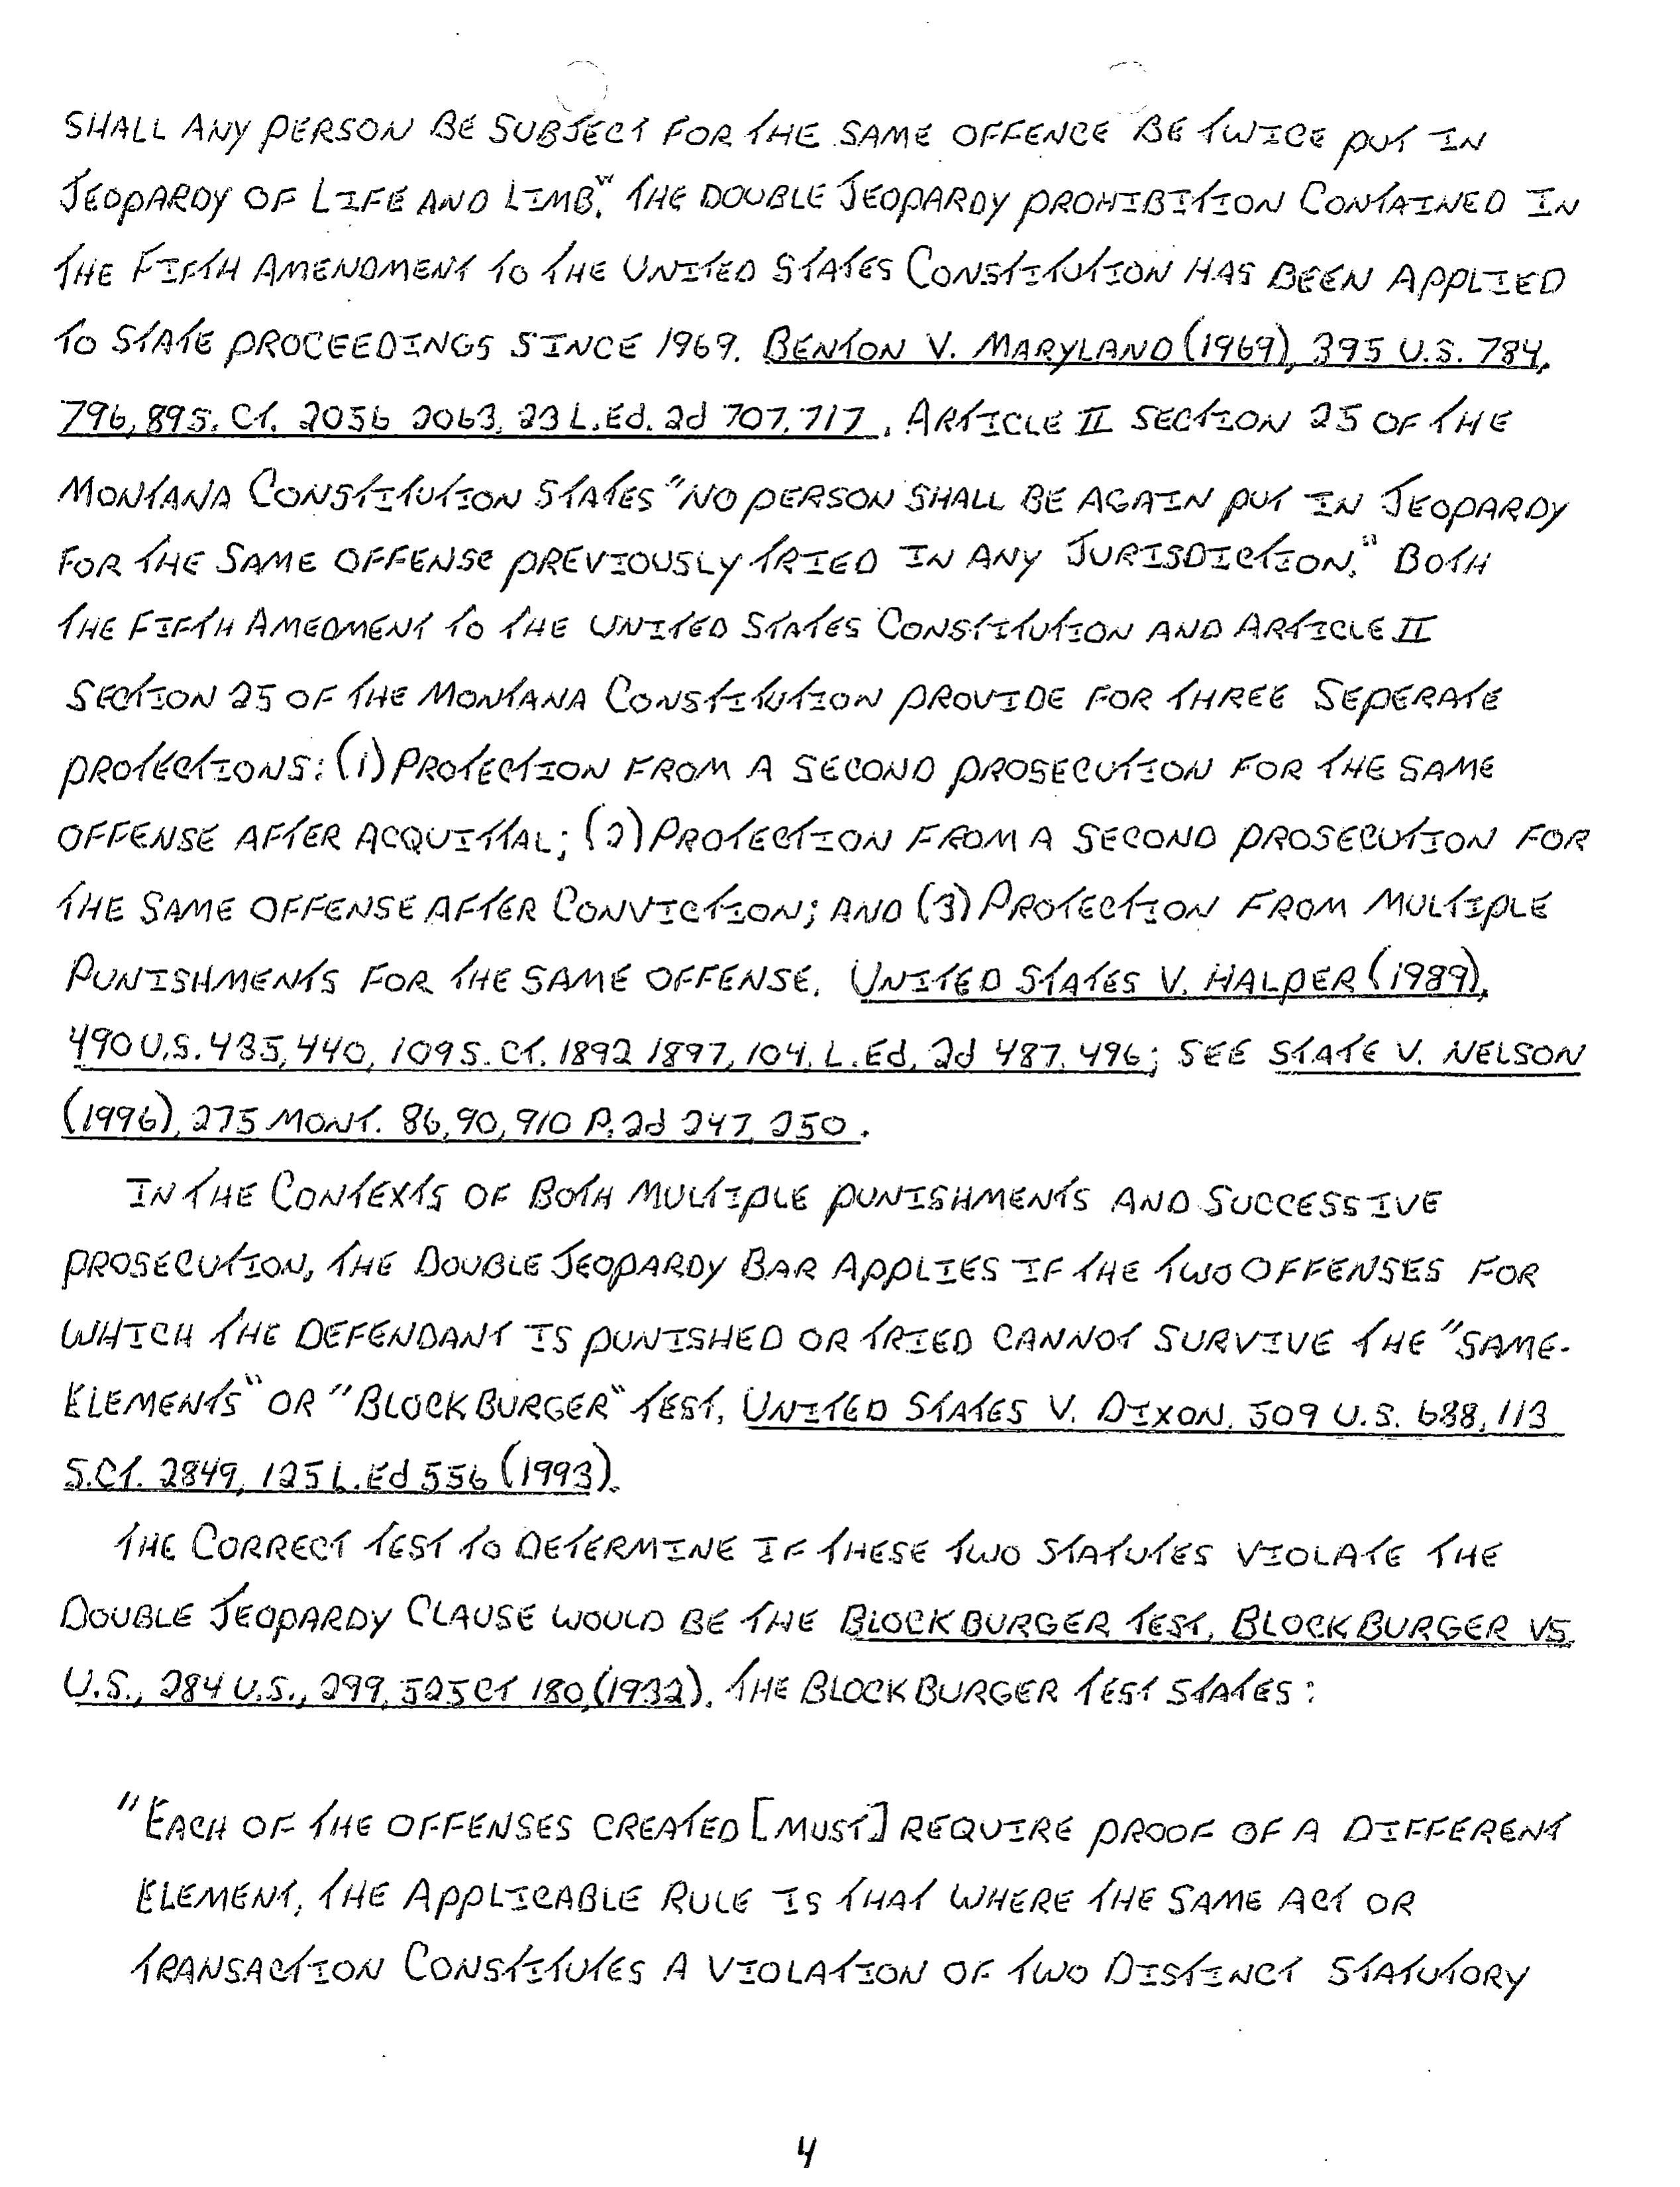 SHALL ANY PERSON BE SUBJECT FOR THE SAME OFFENCE BE TWICE PUT IN
JEOPARDY OF LIFE AND LIMB." THE DOUBLE JEOPARDY PROHIBITION CONTAINED IN
THE FIFTH AMENDMENT TO THE UNITED STATES CONSTITUTION HAS BEEN APPLIED
TO STATE PROCEEDINGS SINCE 1969. BENTON V. MARYLAND (1969), 395 U.S. 784,
796, 89 S. CT. 2056 2063, 23 L.Ed. 2d 707, 717. ARTICLE II SECTION 25 OF THE
MONTANA CONSTITUTION STATES "NO PERSON SHALL BE AGAIN PUT IN JEOPARDY
FOR THE SAME OFFENSE PREVIOUSLY TRIED IN ANY JURISDICTION." BOTH
THE FIFTH AMEDMENT TO THE UNITED STATES CONSTITUTION AND ARTICLE II
SECTION 25 OF THE MONTANA CONSTITUTION PROVIDE FOR THREE SEPERATE
PROTECTIONS: (1) PROTECTION FROM A SECOND PROSECUTION FOR THE SAME
OFFENSE AFTER ACQUITTAL; (2) PROTECTION FROM A SECOND PROSECUTION FOR
THE SAME OFFENSE AFTER CONVICTION; AND (3) PROTECTION FROM MULTIPLE
PUNISHMENTS FOR THE SAME OFFENSE. UNITED STATES V. HALPER (1989),
490 U.S. 435, 440, 109 S. CT. 1892 1897, 104. L.Ed, 2d 487, 496; SEE STATE V. NELSON
(1996), 275 MONT. 86, 90, 910 P. 2d 247, 250.
IN THE CONTEXTS OF BOTH MULTIPLE PUNISHMENTS AND SUCCESSIVE
PROSECUTION, THE DOUBLE JEOPARDY BAR APPLIES IF THE TWO OFFENSES FOR
WHICH THE DEFENDANT IS PUNISHED OR TRIED CANNOT SURVIVE THE "SAME-
ELEMENTS" OR "BLOCKBURGER" TEST, UNITED STATES V. DIXON, 509 U.S. 688, 113
S.CT. 2849, 125 L.Ed 556 (1993).
THE CORRECT TEST TO DETERMINE IF THESE TWO STATUTES VIOLATE THE
DOUBLE JEOPARDY CLAUSE WOULD BE THE BLOCKBURGER TEST, BLOCKBURGER VS
U.S., 284 U.S., 299, 52 S CT 180, (1932). THE BLOCKBURGER TEST STATES:
"EACH OF THE OFFENSES CREATED [MUST] REQUIRE PROOF OF A DIFFERENT
ELEMENT, THE APPLICABLE RULE IS THAT WHERE THE SAME ACT OR
TRANSACTION CONSTITUTES A VIOLATION OF TWO DISTINCT STATUTORY
4